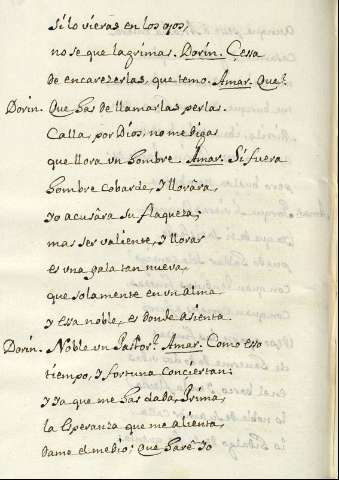 Si lo vieras en los ojos,
no se que lagrimas. Dorin. Cessa
de encarezerlas, que temo. Amar. Que?
Dorin. Que has de llamarlas perlas.
Calla, por Dios, no me digas
que llora un hombre Amar. Si fuera
hombre cobarde, y llorára,
yo acusára su flaqueza;
mas ser valiente, y llorar
es una gala tan nueva,
que solamente en un alma
y essa noble, es donde asienta.
Dorin. Noble un Pastor? Amar. Como esso
tiempo, y fortuna conciertan:
y ya que me has dado, Prima,
la Esperanza que me alienta,
dame el medio; que haré yo